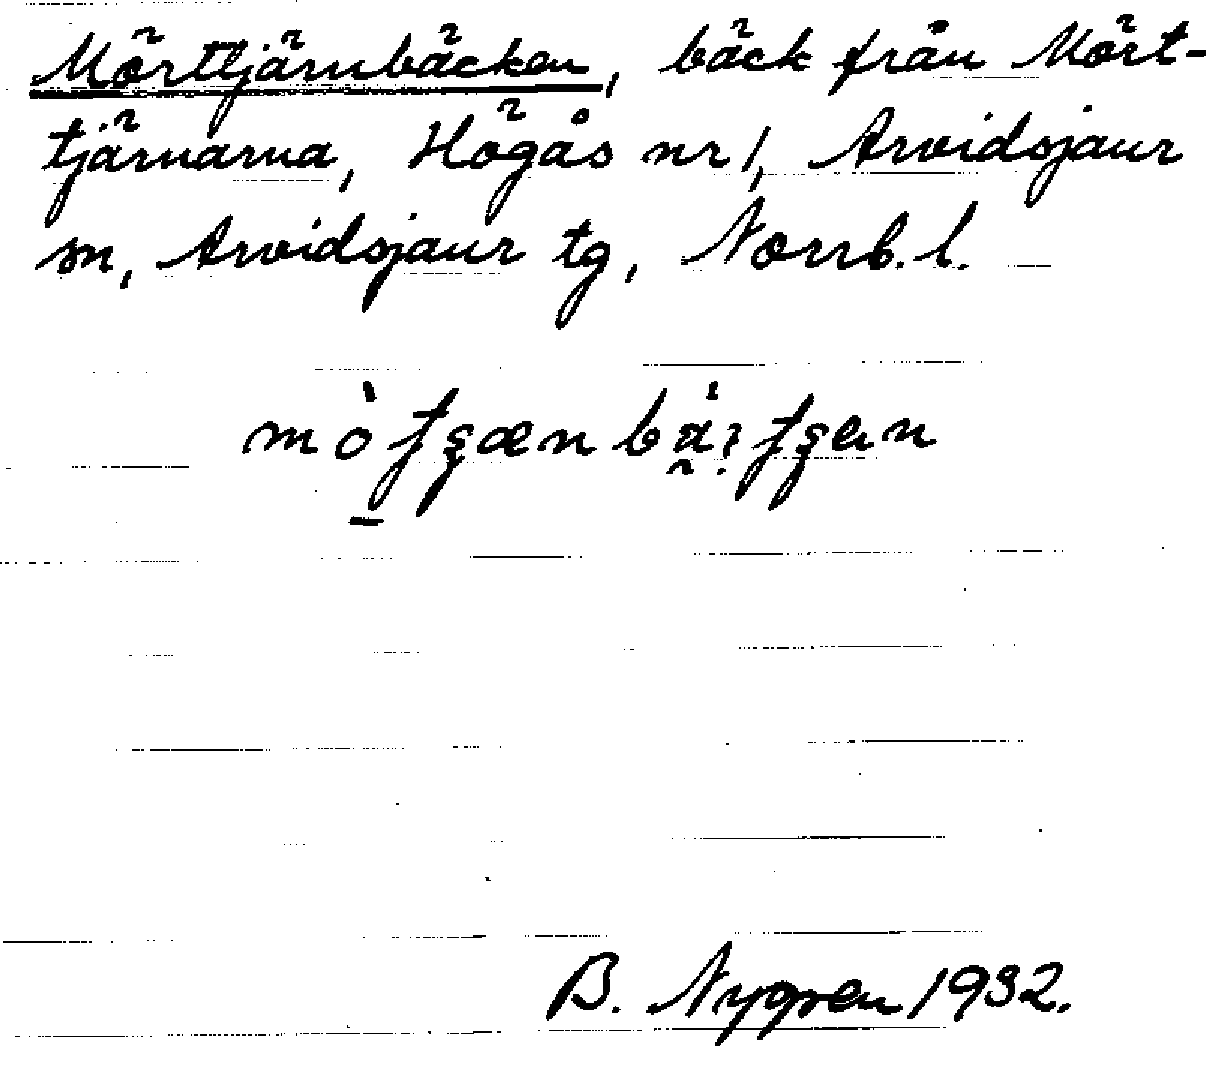 Mörttjärnbäcken, bäck från Mört-
tjärnarna, Högås nr 1, Arvidsjaur
sn, Arvidsjaur tg, Norrb. l.
B. Nygren 1932.